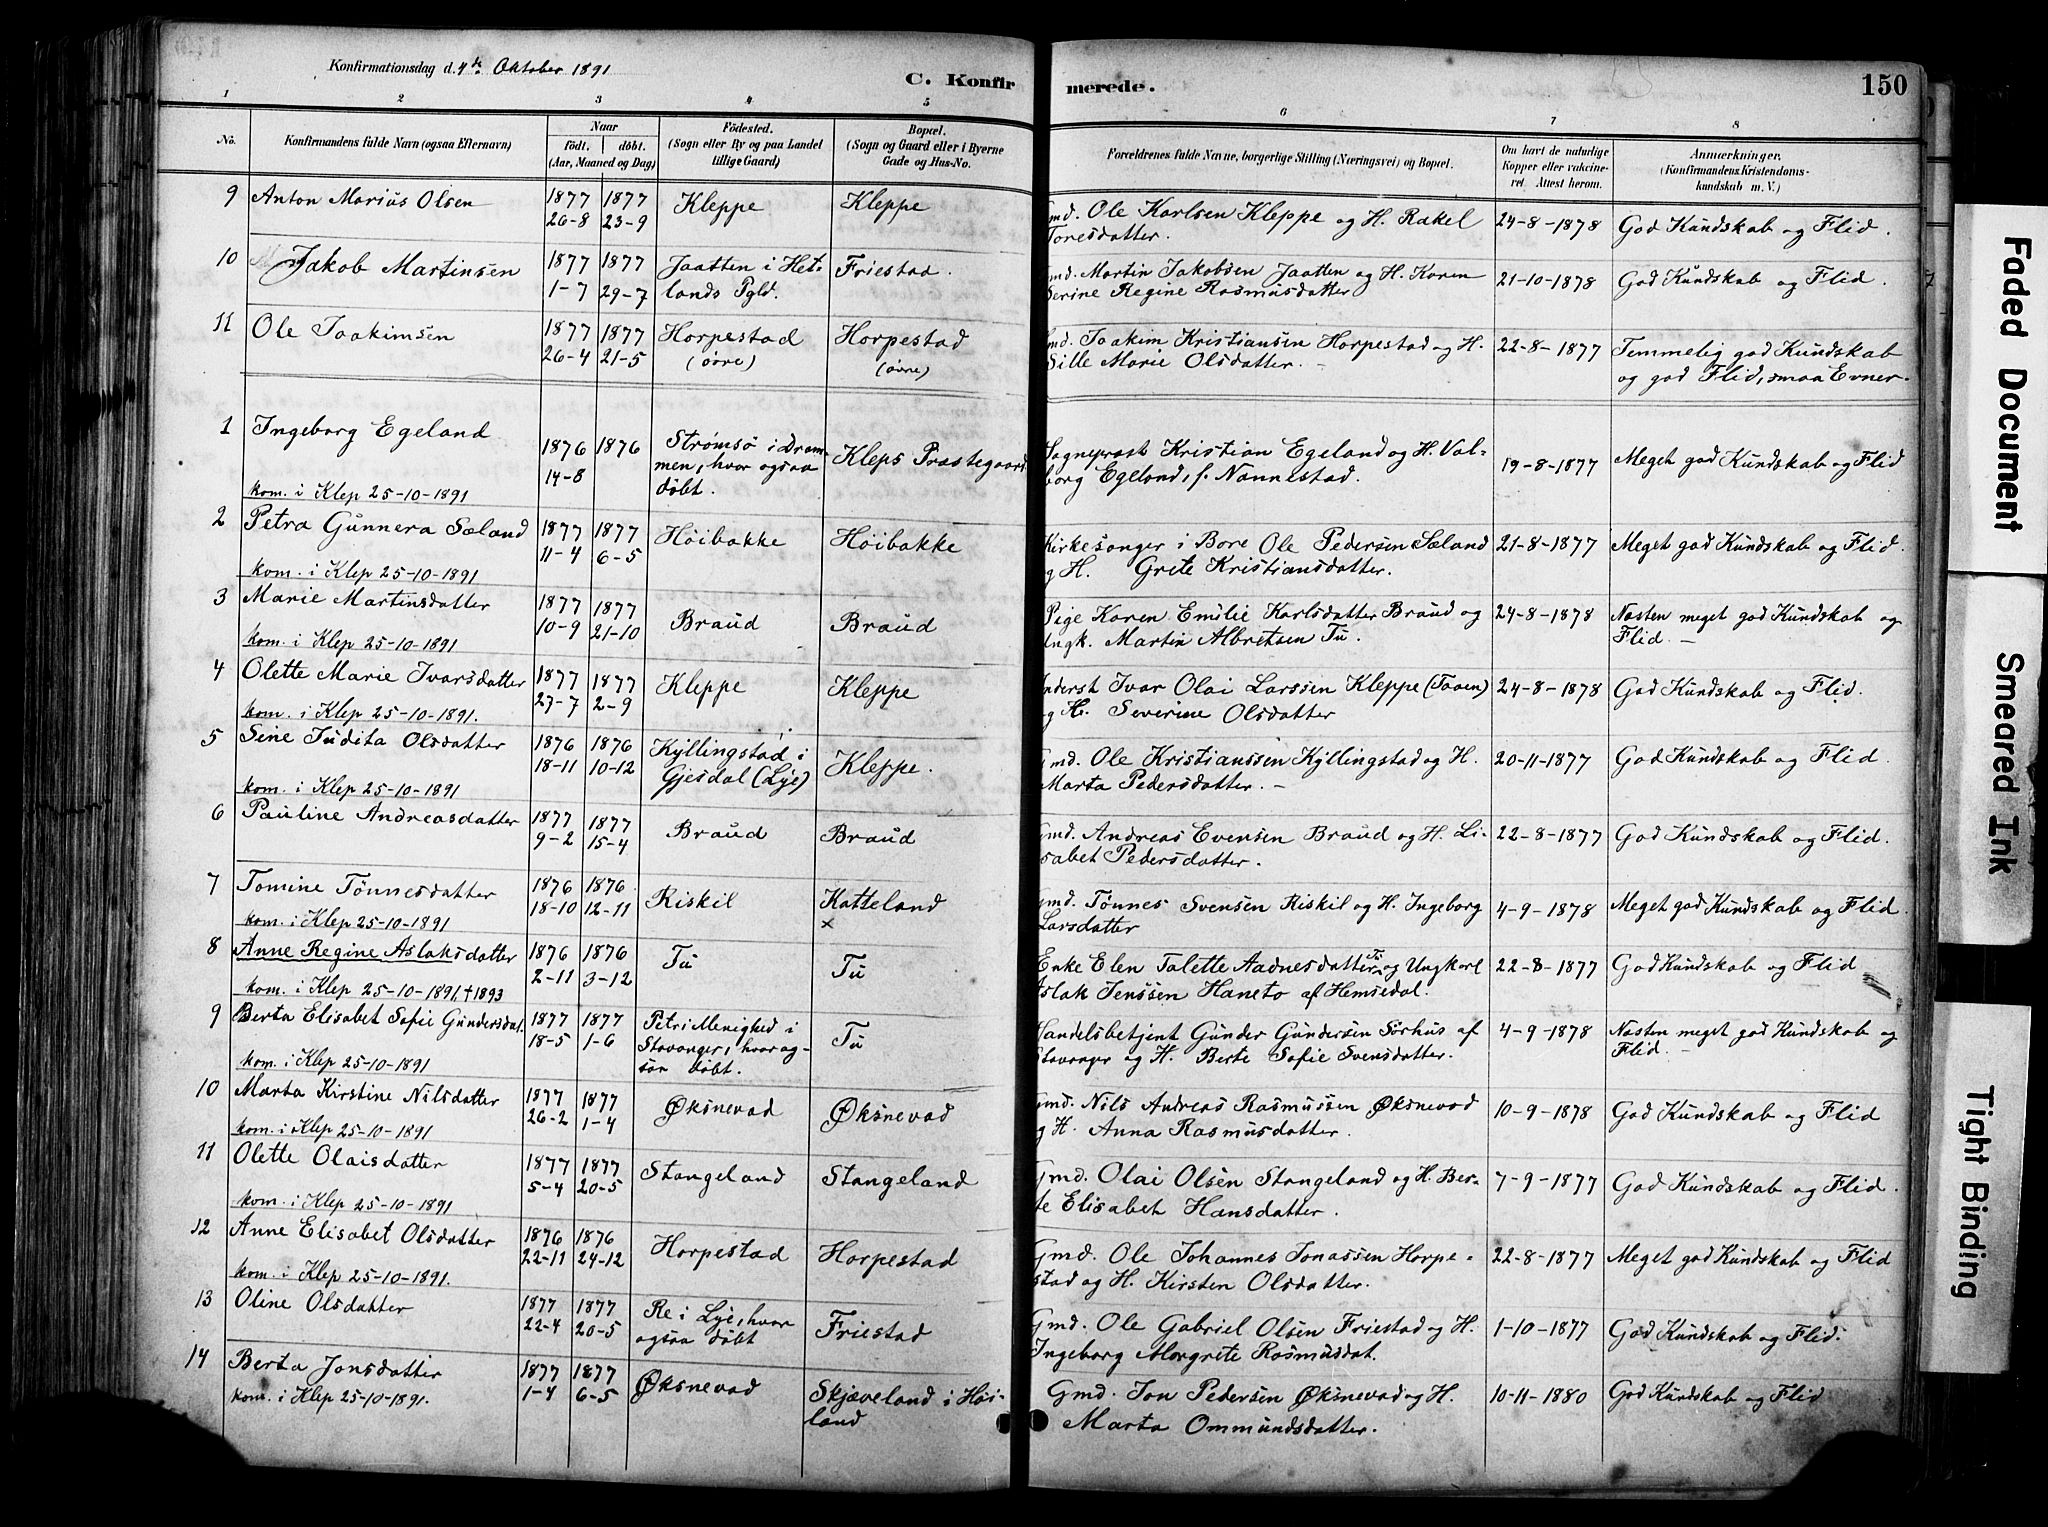 Konfirmationsdag d. 4de Oktober 1891
C. Konfirmerede.
150
1 2 3 4 5 6 7 8
No.
Konfirmandens fulde Navn (ogsaa Efternavn)
Naar
födt. döbt.
(Aar, Maaned og Dag)
Födested.
(Sogn eller By og paa Landet tillige Gaard)
Bopæl.
(Sogn og Gaard eller i Byerne Gade og Hus-No.
Forældrenes fulde Navne, borgerlige Stilling (Næringsvei) og Bopæl.
Om havt de naturlige Kopper eller vakcineret. Attest herom.
Anmærkninger.
(Konfirmandens Kristendomskundskab m. V.)
9 Anton Marius Olsen 1877 26-8 1877 23-9 Kleppe Kleppe Gmd. Ole Karlsen Kleppe og H. Rakel Toresdatter. 24-8-1878 God Kundskab og Flid.
10 Jakob Martinsen 1877 1-7 1877 29-7 Jaatten i Hetlands Pgld. Friestad. Gmd. Martin Jakobsen Jaatten og H. Karen Serine Regine Rasmusdatter 21-10-1878 God Kundskab og Flid.
11 Ole Joakimsen 1877 26-4 1877 21-5 Horpestad (övre) Horpestad (övre) Gmd. Joakim Kristiansen Horpestad og H. Sille Marie Olsdatter. - 22-8-1877 Temmelig god Kundskab og god Flid, smaa Evner.
1 Ingeborg Egeland kom. i Klep 25-10-1891 1876 14-8 1876 Strømsö i Drammen, hvor ogsaa döbt. Kleps Præstegaard Sogneprest Kristian Egeland og H. Valborg Egeland, f. Nannestad. 19-8-1877 Meget god Kundskab og Flid
2 Petra Gunnera Sæland kom. i Klep 25-10-1891 1877 11-4 1877 6-5 Höibakke Höibakke Kirkesanger i Bore Ole Pedersen Sæland og H. Grete Kristiansdatter. 21-8-1877 Meget god Kundskab og Flid.
3 Marie Martinsdatter kom. i Klep 25-10-1891 1877 10-9 1877 21-10 Braud Braud Pige Karen Emilie Karlsdatter Braud og Ungk. Martin Albretsen Tu. 24-8-1878 Næsten meget god Kundskab og Flid. -
4 Olette Marie Ivarsdatter kom. i Klep 25-10-1891. 1877 27-7 1877 2-9 Kleppe Kleppe Inderst Ivar Olai Larssen Kleppe (Taaen) og H. Severine Olsdatter 24-8-1878 God Kundskab og Flid.
5 Sine Judita Olsdatter kom. i Klep 25-10-1891 1876 18-11 1876 10-12 Kyllingstad i Gjesdal (Lye) Kleppe. Gmd. Ole Kristianssen Kyllingstad og H. Marta Pedersdatter. - 20-11-1877 God Kundskab og Flid.
6 Pauline Andreasdatter 1877 9-2 1877 15-4 Braud Braud Gmd. Andreas Evensen Braud og H. Lisabet Pedersdatter. 22-8-1877 God Kundskab og Flid.
7 Tomine Tönnesdatter kom. i Klep 25-10-1891 1876 18-10 1876 12-11 Riskil Katteland × Gmd. Tönnes Svensen Riskil og H. Ingeborg Larsdatter 4-9-1878 Meget god Kundskab og Flid.
8 Anne Regine Aslaksdatter kom. i Klep 25-10-1891. † 1893 1876 2-11 1876 3-12 Tu Tu Enke Elen Talette Aadnesdatter Tu og Ungkarl Aslak Jenssen Haneto af Hemsedal. 22-8-1877 God Kundskab og Flid
9 Berta Elisabet Sofie Gundersdat. kom. i Klep 25-10-1891 1877 18-5 1877 1-6 Petri Menighed i Stavanger, hvor ogsaa döbt. Tu Handelsbetjent Gunder Gundersen Sörhus af Stavanger og H. Berte Sofie Svensdatter. 4-9-1878 Næsten meget god Kundskab og Flid. -
10 Marta Kirstine Nilsdatter kom. i Klep 25-10-1891 1877 26-2 1877 1-4 Øksnevad Øksnevad Gmd. Nils Andreas Rasmussen Øksnevad og H. Anna Rasmusdatter. 10-9-1878 God Kundskab og Flid
11 Olette Olaisdatter kom. i Klep 25-10-1891 1877 5-4 1877 20-5 Stangeland Stangeland Gmd. Olai Olsen Stangeland og H. Berte Elisabet Hansdatter. 7-9-1877 God Kundskab og Flid.
12 Anne Elisabet Olsdatter kom. i Klep 25-10-1891. 1876 22-11 1876 24-12 Horpestad Horpestad Gmd. Ole Johannes Jonassen Horpestad og H. Kirsten Olsdatter. 22-8-1877 Meget god Kundskab og Flid
13 Oline Olsdatter 1877 22-4 1877 20-5 Re i Lye, hvor ogsaa döbt Friestad Gmd. Ole Gabriel Olsen Friestad og H. Ingeborg Margrete Rasmusdat. 1-10-1877 God Kundskab og Flid.
14 Berta Jonsdatter kom. i Klep 25-10-1891. 1877 1-4 1877 6-5 Øksnevad Skjæveland i Höiland Gmd. Jon Pedersen Øksnevad og H. Marta Ommundsdatter. 10-11-1880 God Kundskab og Flid
Faded Document
Smeared Ink
Tight Binding